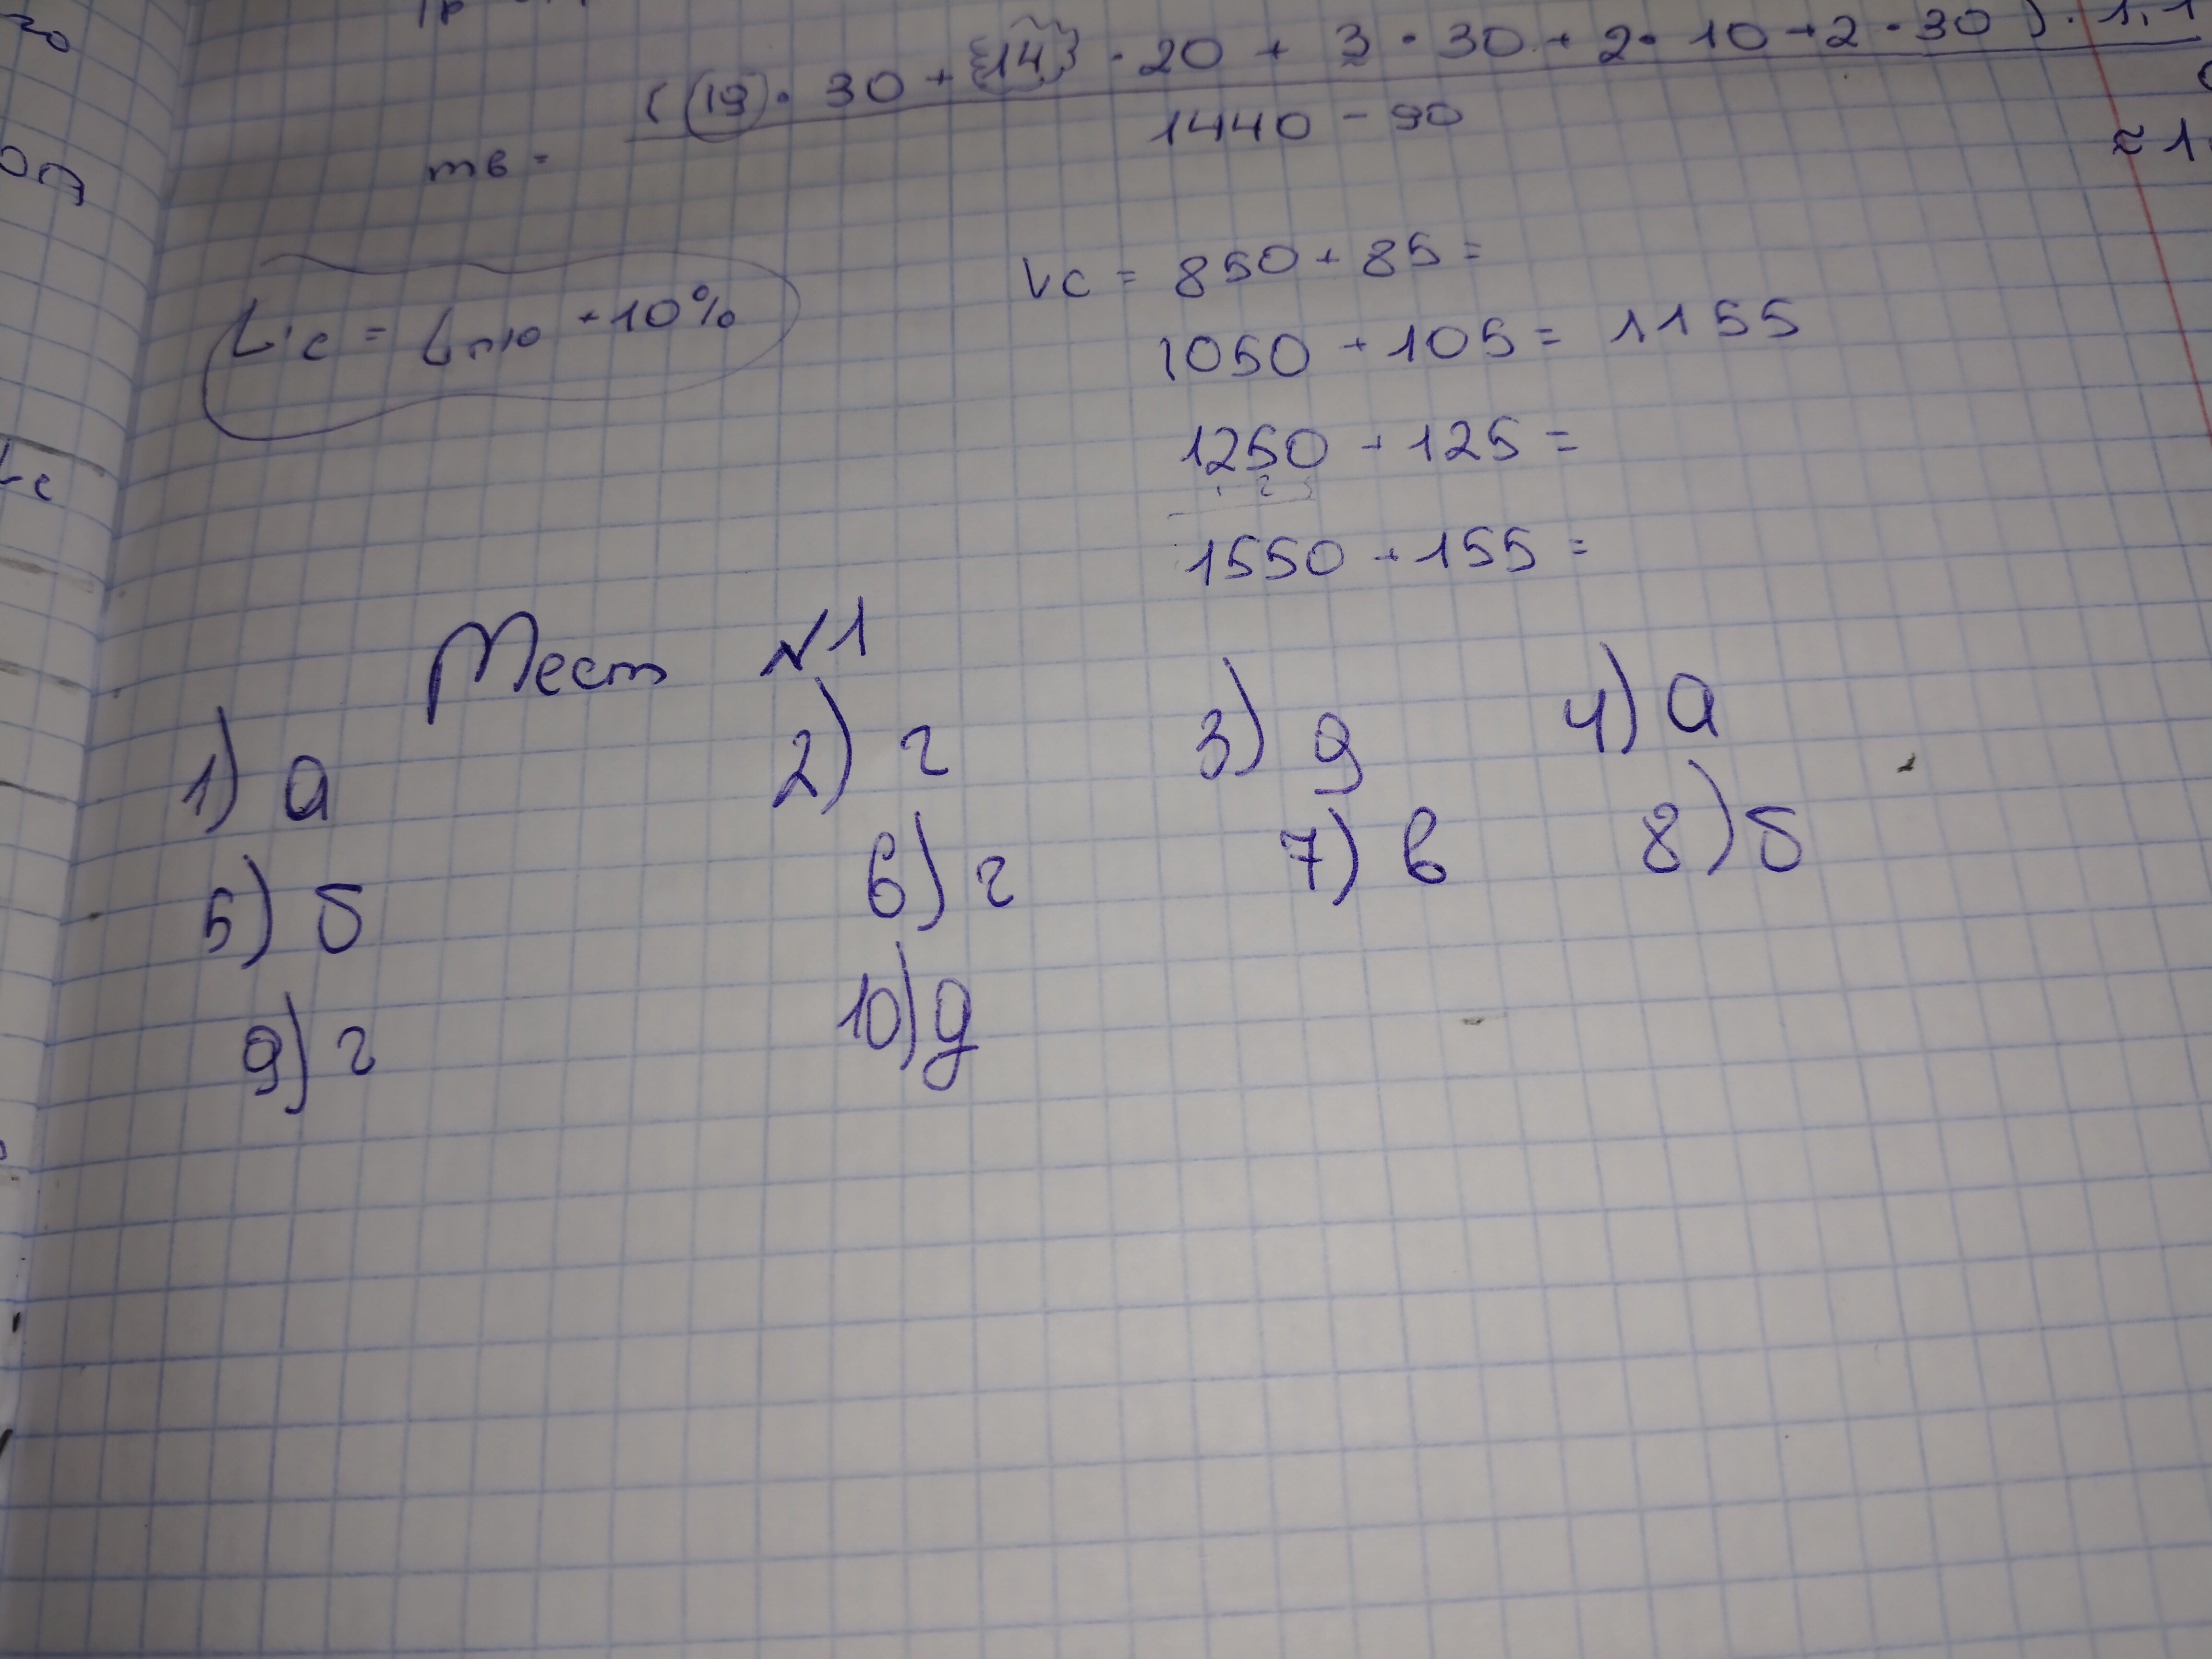 ((19) · 30 + {14} · 20 + 3 · 30 + 2 · 10 + 2 · 30) · 1,1
mв =
1440 - 90
≈ 1
Lc = Lпю + 10%
Lc = 850 + 85 =
1050 + 105 = 1155
1250 + 125 =
1550 + 155 =
Тест №1
1) а 2) г 3) д 4) а
5) б 6) г 7) в 8) б
9) г 10) д